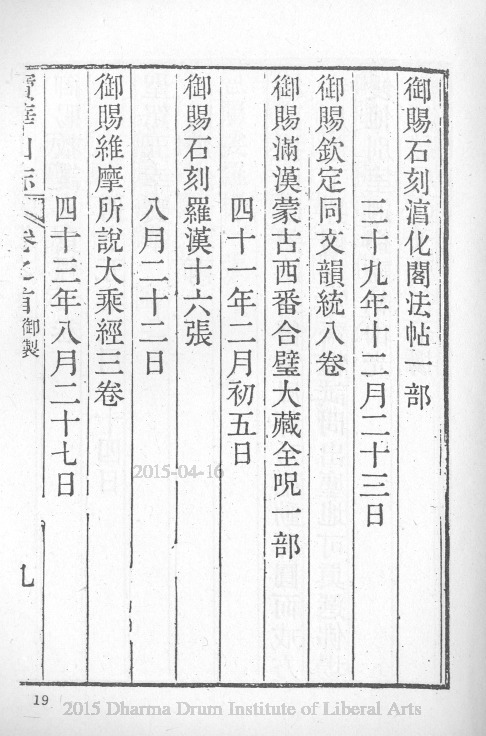 御賜石刻湻化閣法帖一部
三十九年十二月二十三日
御賜欽定同文韻統八卷
御賜滿漢蒙古西番合璧大藏全呪一部
四十一年二月初五日
御賜石刻羅漢十六張
八月二十二日
御賜維摩所說大乘經三卷
四十三年八月二十七日
寶華山志 卷之首 御製 九
2015-04-16
19
2015 Dharma Drum Institute of Liberal Arts